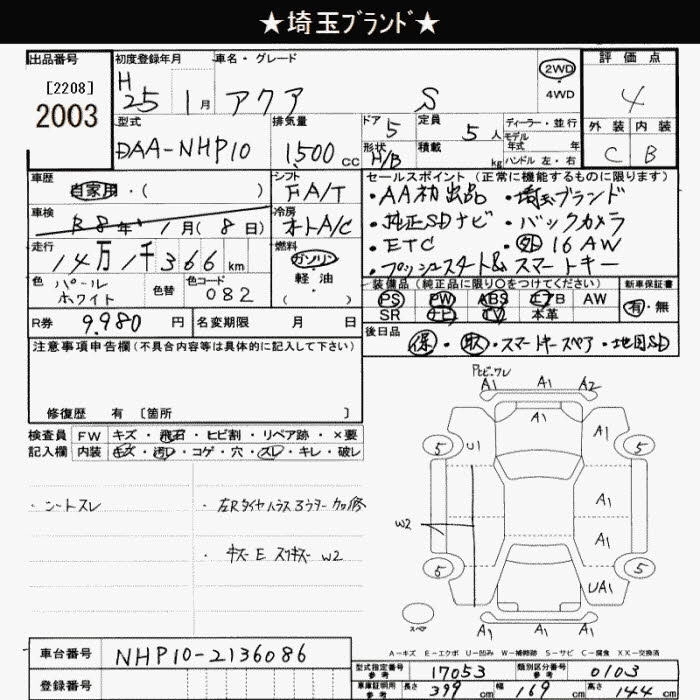 ★埼玉ブランド★
出品番号 初度登録年月 車名・グレード 評価点
[2208]
2003
H 25 1月 アクア S 2WD 4WD 4
型式 排気量 ドア 5 定員 5人 ディーラー・並行 外装 内装
DAA-NHP10 1500cc 形状 H/B 積載 kg モデル年式 年 ハンドル 左・右 C B
車歴 シフト セールスポイント (正常に機能するものに限ります)
自家用・( ) FA/T ・AA初出品 ・埼玉ブランド
車検 冷房 ・純正SDナビ ・バックカメラ
R8年 1月(8日) オートA/C ・ETC ・外16AW
走行 燃料 ・プッシュスタート& スマートキー
14万1千366km ガソリン
色 色替 色コード 軽油 装備品(純正品に限り○をつけてください) 新車保証書
パールホワイト 082 ( ) PS PW ABS エアB AW 有・無
SR ナビ TV 本革
R券 9.980円 名変期限 月 日 後日品
保・取・スマートキースペア・地図SD
注意事項申告欄(不具合内容等は具体的に記入して下さい)
修復歴 有 [箇所 ]
検査員 FW キズ・飛石・ヒビ割・リペア跡・×要
記入欄 内装 キズ・汚れ・コゲ・穴・スレ・キレ・破レ
・シートスレ
・キズ E スリキズ W2
A1 A1 A2
5 U1 A1 A1 5
A1
W2 A1
5 UA1 5
スペア A1 A1 A1
A-キズ E-エクボ U-凹み W-補修跡 S-サビ C-腐食 XX-交換済
車台番号 NHP10-2136086
登録番号
型式指定番号 参考 17053 類別区分番号 参考 0103
車庫証明用 参考 長さ 399cm 幅 169cm 高さ 144cm